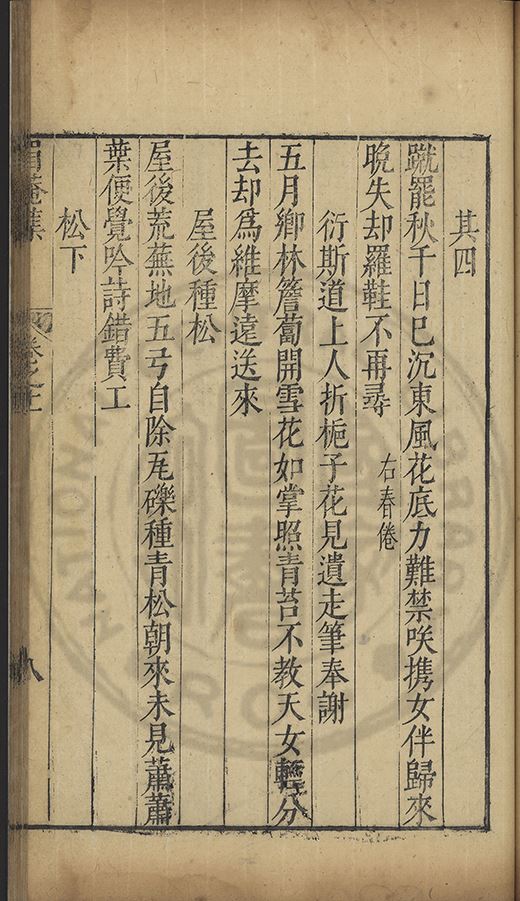 其四
蹴罷秋千日已沉東風花底力難禁咲携女伴歸來
晚失却羅鞋不再尋
右春倦
衍斯道上人折梔子花見遺走筆奉謝
五月鄉林簷蔔開雪花如掌照青苔不教天女輕分
去却爲維摩遠送來
屋後種松
屋後荒蕪地五弓自除瓦礫種青松朝來未見蕭蕭
葉便覺吟詩錯費工
松下
眉菴集
卷之上
八